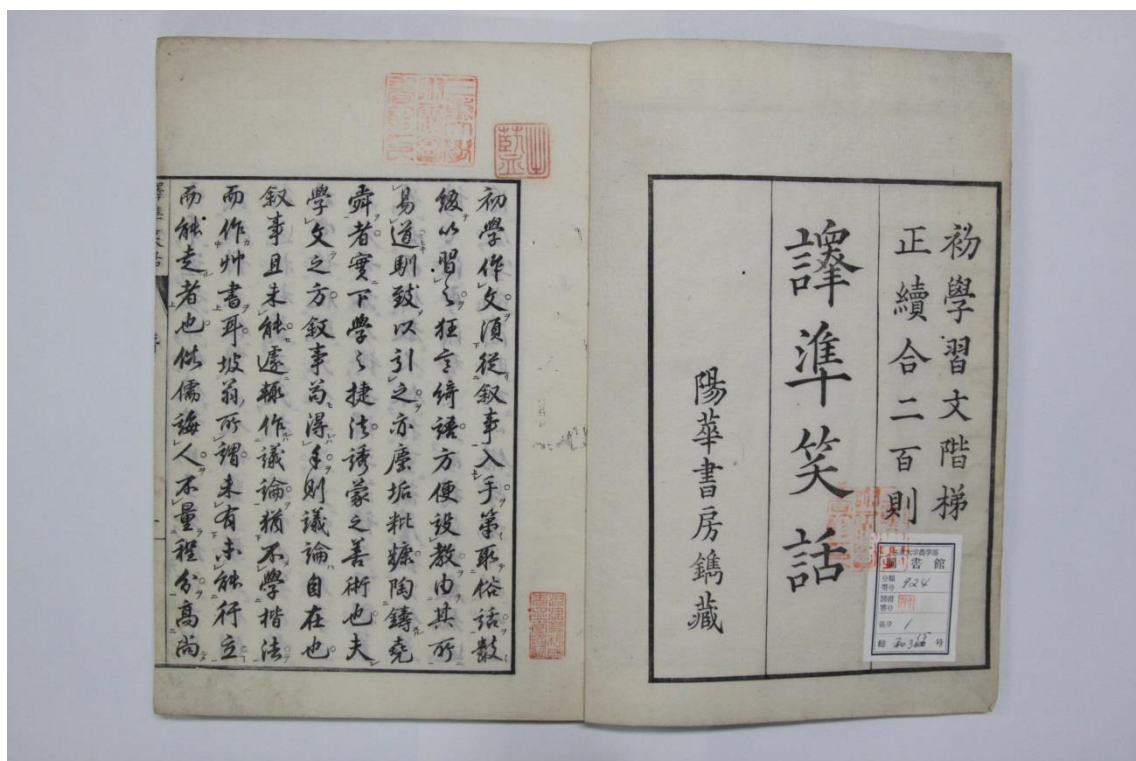 初學習文階梯
正續合二百則
譯準笑話
陽華書房鐫藏
圖書館
924
1
初學作文須從叙事入手第取俗話數
綴以習之狂言綺語方便設教由其所
易道馴致以引之亦塵垢粃糠陶鑄堯
舜者實下學之捷法誘蒙之善術也夫
學文之方叙事苟得手則議論自在也
叙事且未能遽輒作議論猶不學楷法
而作艸書耳坡翁所謂未有未能行立
而能走者也俗儒誨人不量程分高尚